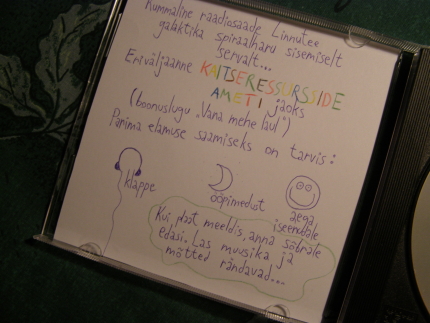 Kummaline raadiosaade Linnutee
galaktika spiraalharu sisemiselt
servalt...
Eriväljaanne KAITSERESSURSSIDE
AMETI jaoks
(boonuslugu "Vana mehe laul")
Parima elamuse saamiseks on tarvis:
klappe
ööpimedust
aega
iseendale
Kui plaat meeldis, anna sõbrale
edasi. Las muusika ja
mõtted rändavad...